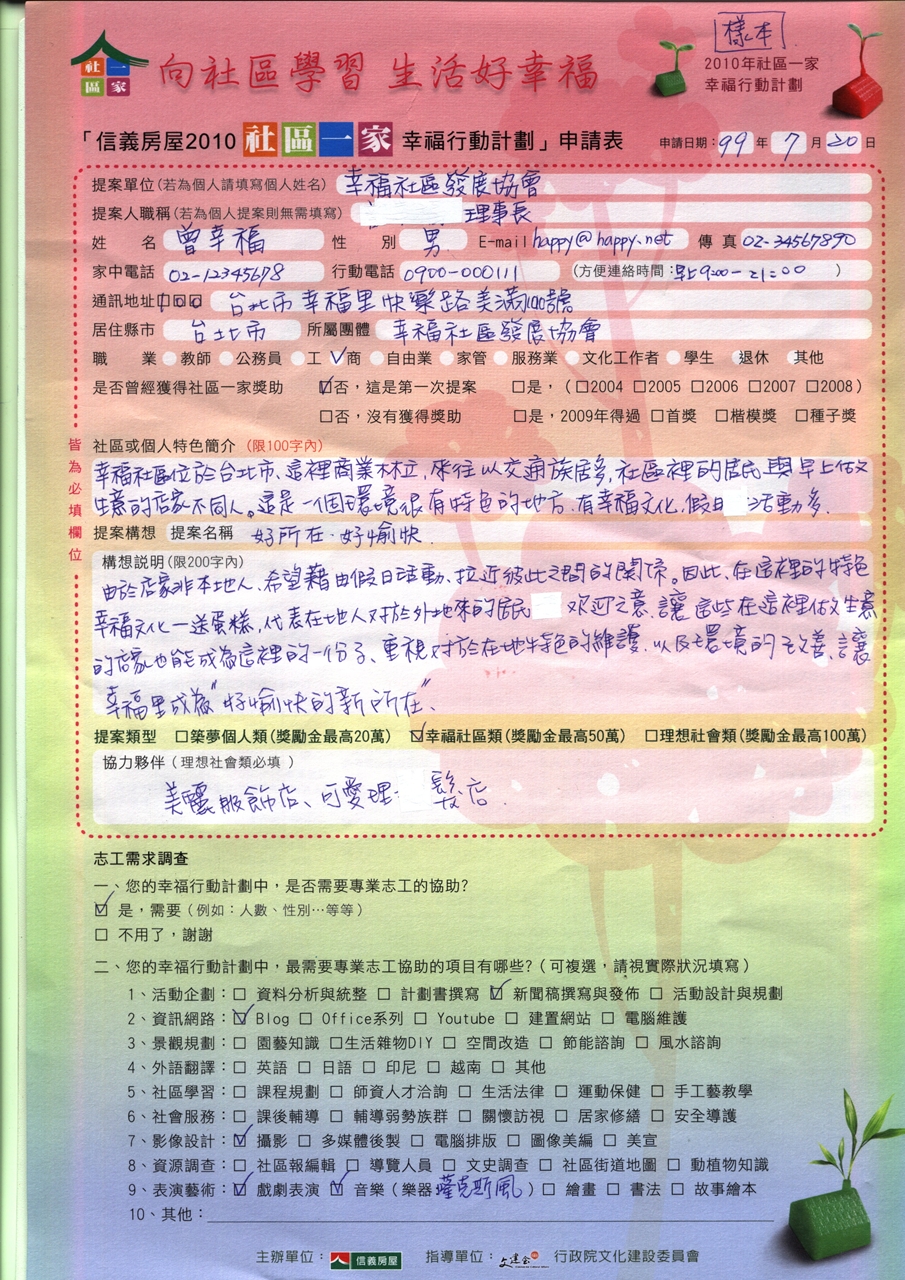 樣本
社一區家
向社區學習 生活好幸福
2010年社區一家
幸福行動計劃
「信義房屋2010 社區一家 幸福行動計劃」申請表 申請日期：99年7月20日
提案單位(若為個人請填寫個人姓名) 幸福社區發展協會
提案人職稱(若為個人提案則無需填寫) 理事長
姓 名 曾幸福 性 別 男 E-mail happy@happy.net 傳真 02-34567890
家中電話 02-12345678 行動電話 0900-000111 (方便連絡時間：早上9:00-21:00)
通訊地址□□□ 台北市幸福里快樂路美滿100號
居住縣市 台北市 所屬團體 幸福社區發展協會
職 業 教師 公務員 工 ✓商 自由業 家管 服務業 文化工作者 學生 退休 其他
是否曾經獲得社區一家獎助 ☑否，這是第一次提案 □是，(□2004 □2005 □2006 □2007 □2008)
□否，沒有獲得獎助 □是，2009年得過 □首獎 □楷模獎 □種子獎
皆為必填欄位
社區或個人特色簡介 (限100字內)
幸福社區位於台北市、這裡商業林立，來往以交通族居多，社區裡的居民與早上做
生意的店家不同人。這是一個環境很有特色的地方.有幸福文化,假日 活動多.
提案構想 提案名稱 好所在．好愉快
構想說明(限200字內)
由於店家非本地人、希望藉由假日活動、拉近彼此之間的關係。因此、在這裡的特色
幸福文化一送蛋糕，代表在地人對於外地來的民 歡迎之意、讓這些在這裡做生意
的店家也能成為這裡的一份子、重視對於在地特色的維護、以及環境的改善、讓
幸福里成為"好愉快的新所在"、
提案類型 □築夢個人類(獎勵金最高20萬) ☑幸福社區類(獎勵金最高50萬) □理想社會類(獎勵金最高100萬)
協力夥伴(理想社會類必填)
美麗服飾店、可愛理 髮店.
志工需求調查
一、您的幸福行動計劃中，是否需要專業志工的協助?
☑ 是，需要(例如：人數、性別…等等)
□ 不用了，謝謝
二、您的幸福行動計劃中，最需要專業志工協助的項目有哪些?(可複選，請視實際狀況填寫)
1、活動企劃：□ 資料分析與統整 □ 計劃書撰寫 ☑ 新聞稿撰寫與發佈 □ 活動設計與規劃
2、資訊網路：☑ Blog □ Office系列 □ Youtube □ 建置網站 □ 電腦維護
3、景觀規劃：□ 園藝知識 □生活雜物DIY □ 空間改造 □ 節能諮詢 □ 風水諮詢
4、外語翻譯：□ 英語 □ 日語 □ 印尼 □ 越南 □ 其他
5、社區學習：□ 課程規劃 □ 師資人才洽詢 □ 生活法律 □ 運動保健 □ 手工藝教學
6、社會服務：□ 課後輔導 □ 輔導弱勢族群 □ 關懷訪視 □ 居家修繕 □ 安全導護
7、影像設計：☑ 攝影 □ 多媒體後製 □ 電腦排版 □ 圖像美編 □ 美宣
8、資源調查：□ 社區報編輯 □ 導覽人員 □ 文史調查 □ 社區街道地圖 □ 動植物知識
9、表演藝術：☑ 戲劇表演 ☑ 音樂(樂器薩克斯風) □ 繪畫 □ 書法 □ 故事繪本
10、其他：
主辦單位：信義房屋 指導單位：文建會 行政院文化建設委員會